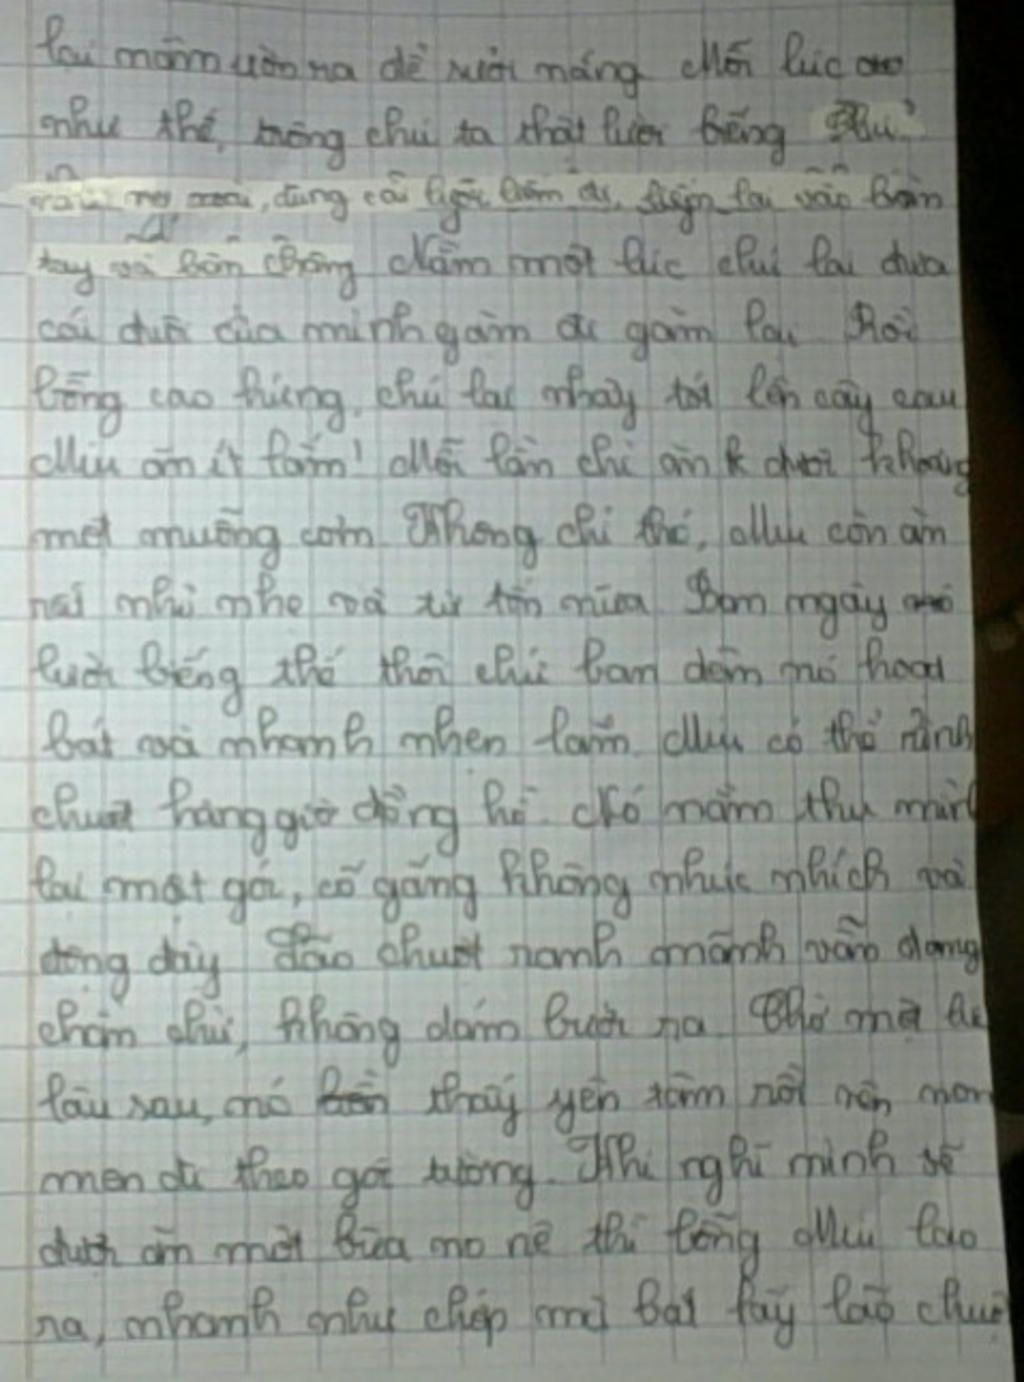 lại nằm ườn ra để sưởi nắng. Mỗi lúc
như thế, trông chú ta thật lười biếng.
dùng cái lưỡi liếm đi, liếm lại vào bàn
tay và bàn chân. Nằm một lúc chú lại đưa
cái đuôi của mình gặm đi gặm lại. Rồi
bỗng cao hứng, chú lại nhảy tót lên cây cau
Miu ăn ít lắm! Mỗi lần chỉ ăn được khoảng
một muỗng cơm. Không chỉ thế, Miu còn ăn
rất nhỏ nhẹ và từ tốn nữa. Ban ngày nó
lười biếng thế thôi chứ ban đêm nó hoạt
bát và nhanh nhẹn lắm. Miu có thể rình
chuột hàng giờ đồng hồ. Nó nằm thu mình
lại một góc, cố gắng không nhúc nhích và
động đậy. Lão chuột ranh mãnh vẫn đang
không dám bước ra. Chờ một
lâu sau, nó thấy yên tâm rồi nên mon
men đi theo góc tường. Khi nghĩ mình sẽ
được ăn một bữa no nê thì bỗng Miu lao
ra, nhanh như chớp bắt lấy lão chuột